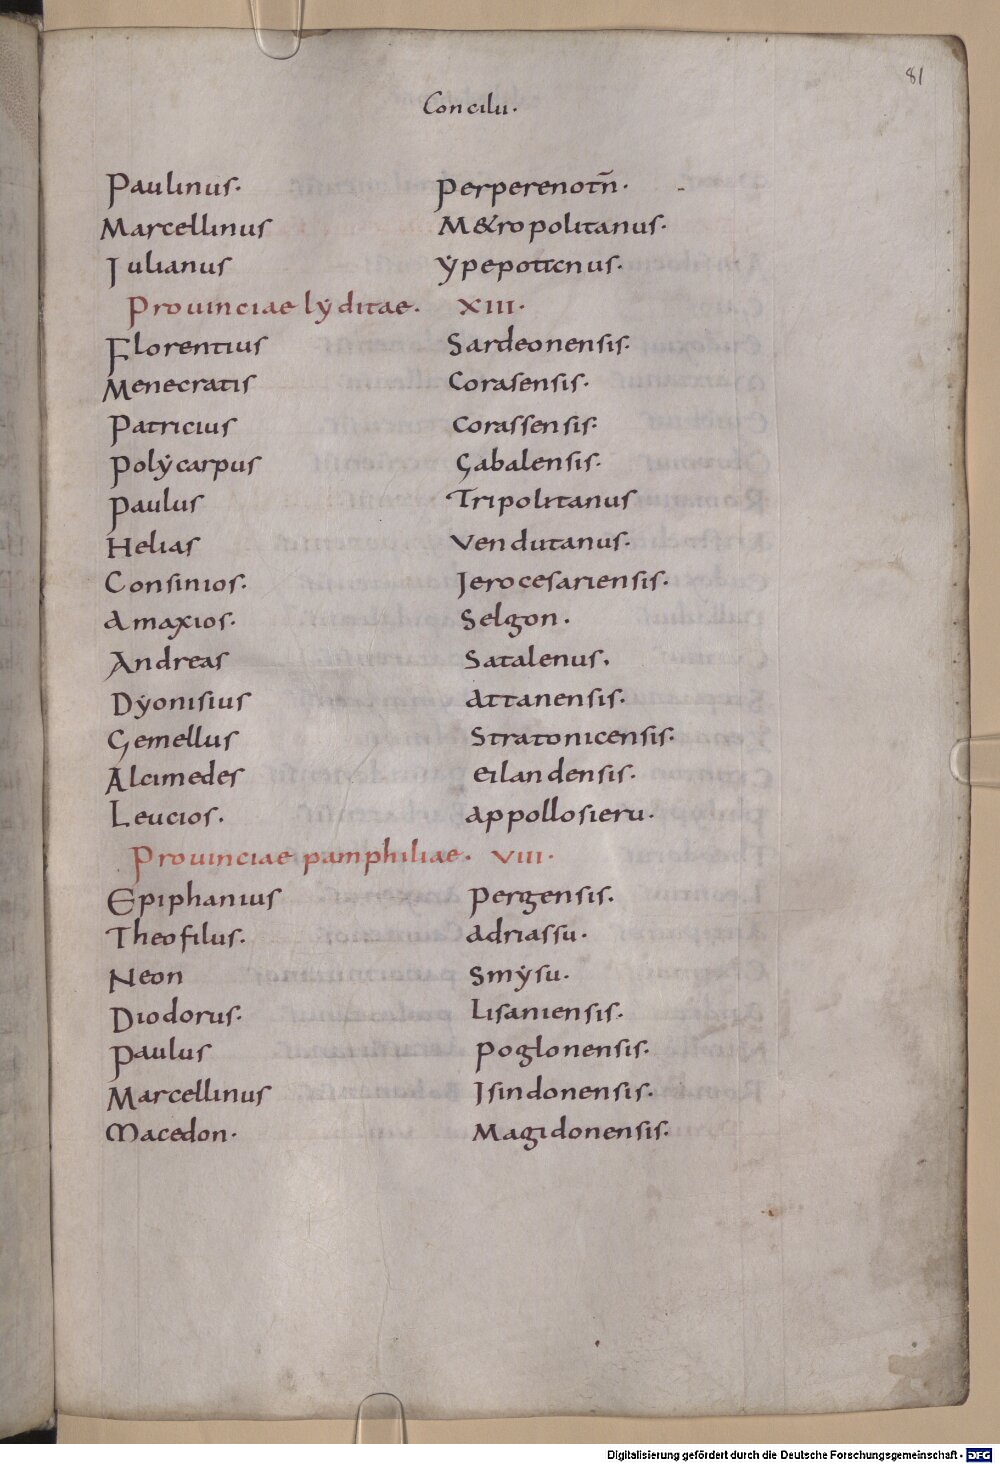 81
Concilii.
Paulinus. Perperenotn̄.
Marcellinus M&ropolitanus.
Julianus ẏpepoticnus.
Prouinciae lẏditae. XIII.
Florentius Sardeonensis.
Menecratis Corasensis.
Patricius Corassensis:
Polẏcarpus Gabalensis.
Paulus Tripolitanus
Helias Vendutanus.
Consinios. Jerocesariensis.
Amaxios. Selgon.
Andreas Satalenus.
Dẏonisius Attanensis.
Gemellus Stratonicensis.
Alcimedes eilandensis.
Leucios. Appollosieru.
Prouinciae pamphiliae. VIII.
Epiphanius Pergensis.
Theofilus. Adriassu.
Neon Smẏsu.
Diodorus. Lisaniensis.
Paulus Poglonensis.
Marcellinus Isindonensis.
Macedon. Magidonensis.
Digitalisierung gefördert durch die Deutsche Forschungsgemeinschaft - DFG